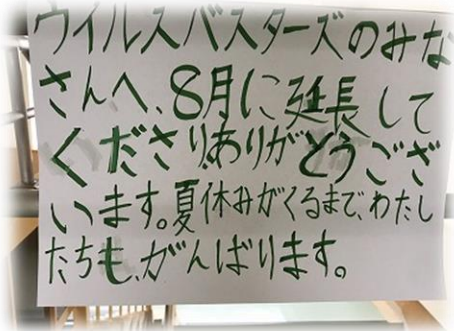 ウイルスバスターズのみな
さんへ、8月に延長して
くださり、ありがとうござ
います。夏休みがくるまで、わたし
たちも、がんばります。